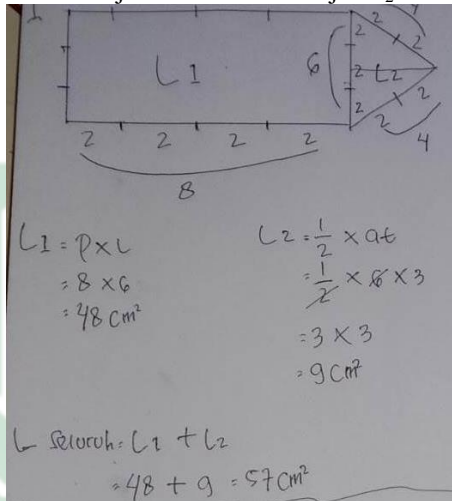 2 2 4
2
6 2 2
L1 2 L2
2 2
2 4
2 2 2 2
8
L1 = P x L
= 8 x 6
= 48 cm²
L2 = 1/2 x at
= 1/2 x 6 x 3
= 3 x 3
= 9 cm²
L seluruh = L1 + L2
= 48 + 9 = 57 cm²